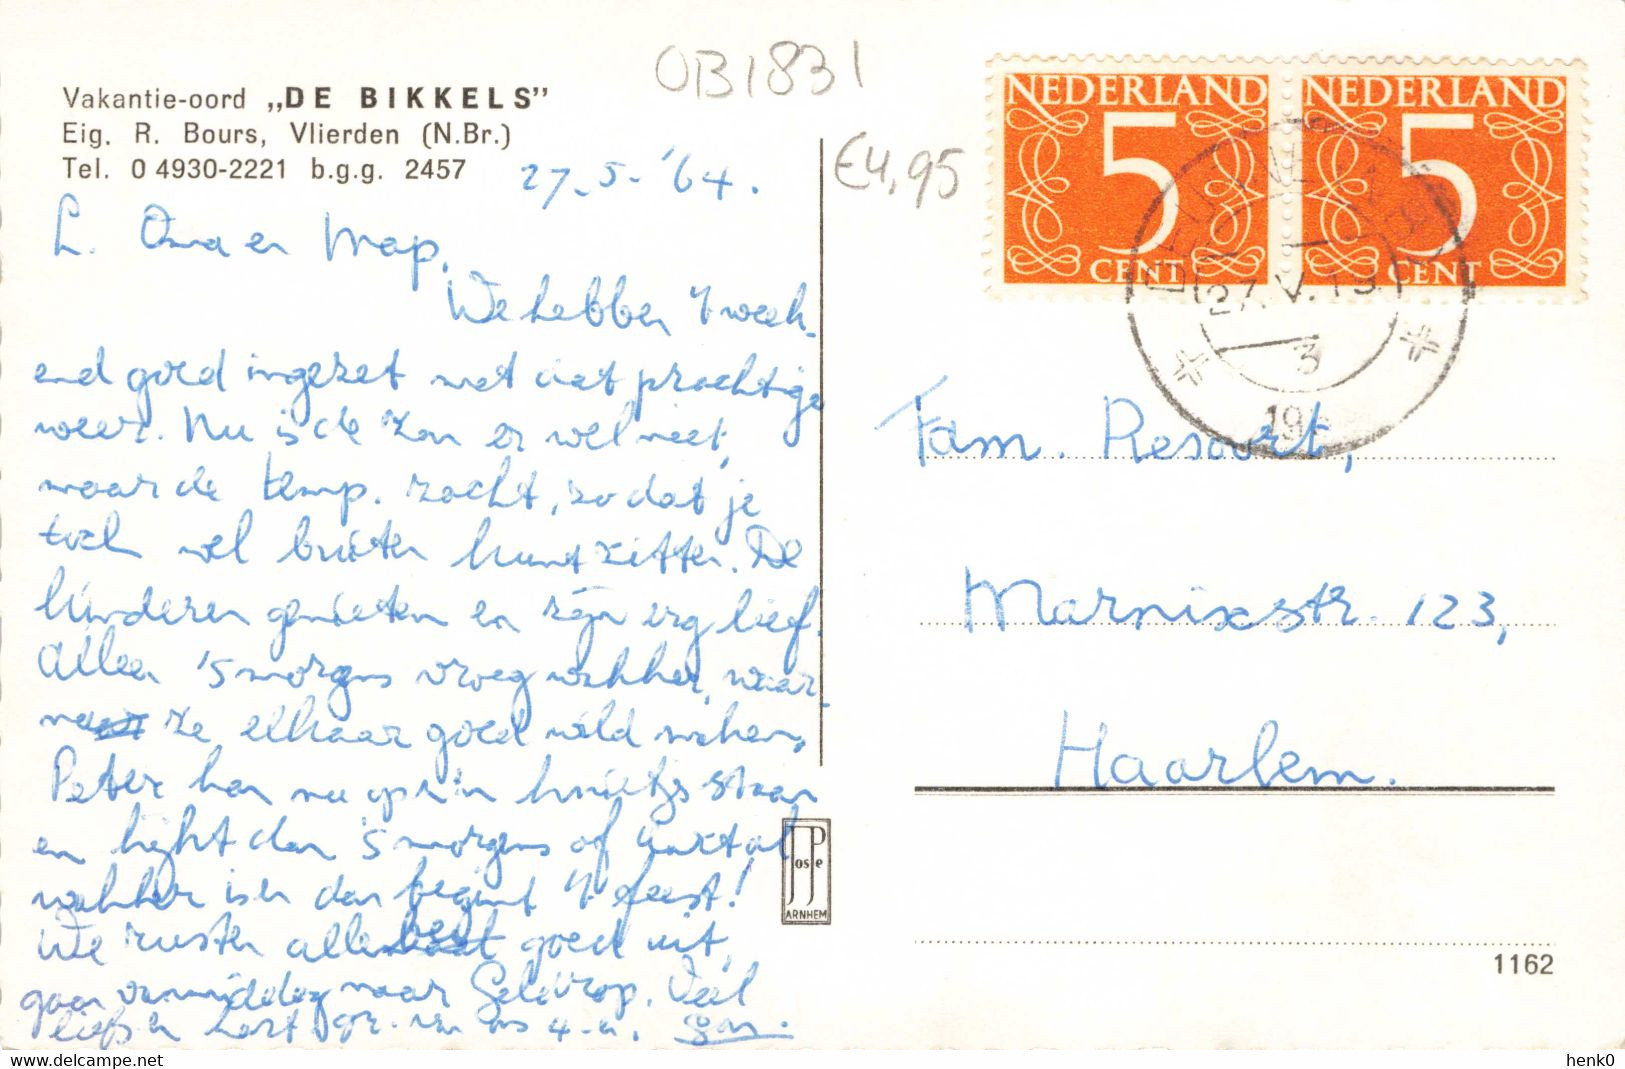 OB1831
Vakantie-oord „DE BIKKELS”
Eig. R. Bours, Vlierden (N.Br.)
Tel. 0 4930-2221 b.g.g. 2457
27-5-'64.
€4,95
NEDERLAND
5
CENT
NEDERLAND
5
CENT
27.V.19
3
19
L. Oma en
We hebben 't week-
end goed ingezet met dat prachtige
weer. Nu is de zon er wel niet,
maar de temp. zacht, zodat je
toch wel buiten kunt zitten. De
kinderen genieten en zijn erg lief.
Alleen 's morgens vroeg wakker, waar-
ze elkaar goed wild maken.
Peter kan nu op z'n knietjes staan
en ligt dan 's morgens of kwart al
wakker is en dan begint 't feest!
We rusten goed uit,
gaan vanmiddag naar Geldrop. Veel
liefs en hart. gr. van ons 4-en.
Fam. Resoort,
Marnixstr. 123,
Haarlem.
JosPe
ARNHEM
1162
henk0
delcampe.net